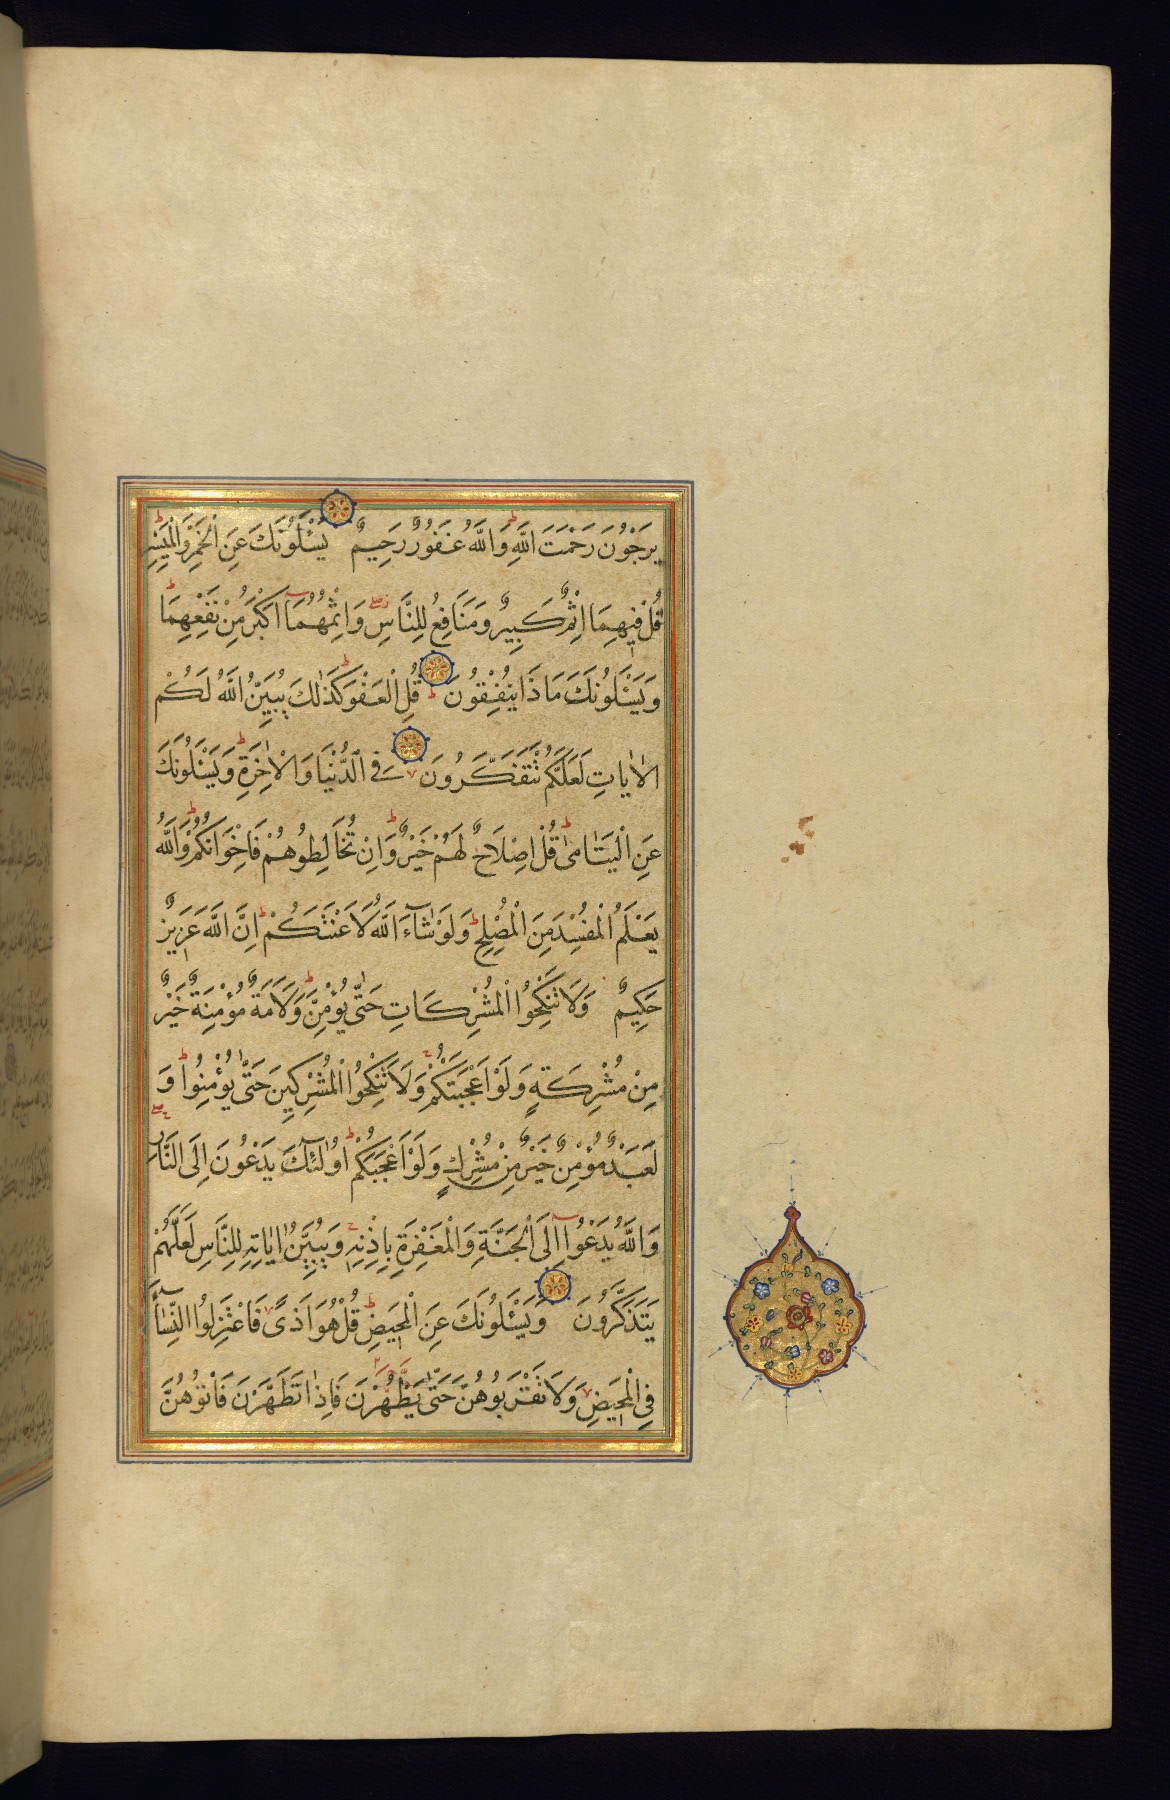 يَرْجُونَ رَحْمَتَ اللَّهِ وَاللَّهُ غَفُورٌ رَحِيمٌ يَسْـَٔلُونَكَ عَنِ الْخَمْرِ وَالْمَيْسِرِ
قُلْ فِيهِمَا اِثْمٌ كَبِيرٌ وَمَنَافِعُ لِلنَّاسِ وَاِثْمُهُمَآ اَكْبَرُ مِنْ نَفْعِهِمَا
وَيَسْـَٔلُونَكَ مَاذَا يُنْفِقُونَ قُلِ الْعَفْوَ كَذٰلِكَ يُبَيِّنُ اللَّهُ لَكُمُ
الْاٰيَاتِ لَعَلَّكُمْ تَتَفَكَّرُونَ فِى الدُّنْيَا وَالْاٰخِرَةِ وَيَسْـَٔلُونَكَ
عَنِ الْيَتَامٰى قُلْ اِصْلَاحٌ لَهُمْ خَيْرٌ وَاِنْ تُخَالِطُوهُمْ فَاِخْوَانُكُمْ وَاللَّهُ
يَعْلَمُ الْمُفْسِدَ مِنَ الْمُصْلِحِ وَلَوْ شَآءَ اللَّهُ لَاَعْنَتَكُمْ اِنَّ اللَّهَ عَزِيزٌ
حَكِيمٌ وَلَا تَنْكِحُوا الْمُشْرِكَاتِ حَتّٰى يُؤْمِنَّ وَلَاَمَةٌ مُؤْمِنَةٌ خَيْرٌ
مِنْ مُشْرِكَةٍ وَلَوْ اَعْجَبَتْكُمْ وَلَا تُنْكِحُوا الْمُشْرِكِينَ حَتّٰى يُؤْمِنُوا وَ
لَعَبْدٌ مُؤْمِنٌ خَيْرٌ مِنْ مُشْرِكٍ وَلَوْ اَعْجَبَكُمْ اُولٰٓئِكَ يَدْعُونَ اِلَى النَّارِ
وَاللَّهُ يَدْعُوٓا اِلَى الْجَنَّةِ وَالْمَغْفِرَةِ بِاِذْنِهِ وَيُبَيِّنُ اٰيَاتِهِ لِلنَّاسِ لَعَلَّهُمْ
يَتَذَكَّرُونَ وَيَسْـَٔلُونَكَ عَنِ الْمَحِيضِ قُلْ هُوَ اَذًى فَاعْتَزِلُوا النِّسَآءَ
فِى الْمَحِيضِ وَلَا تَقْرَبُوهُنَّ حَتّٰى يَطْهُرْنَ فَاِذَا تَطَهَّرْنَ فَاْتُوهُنَّ